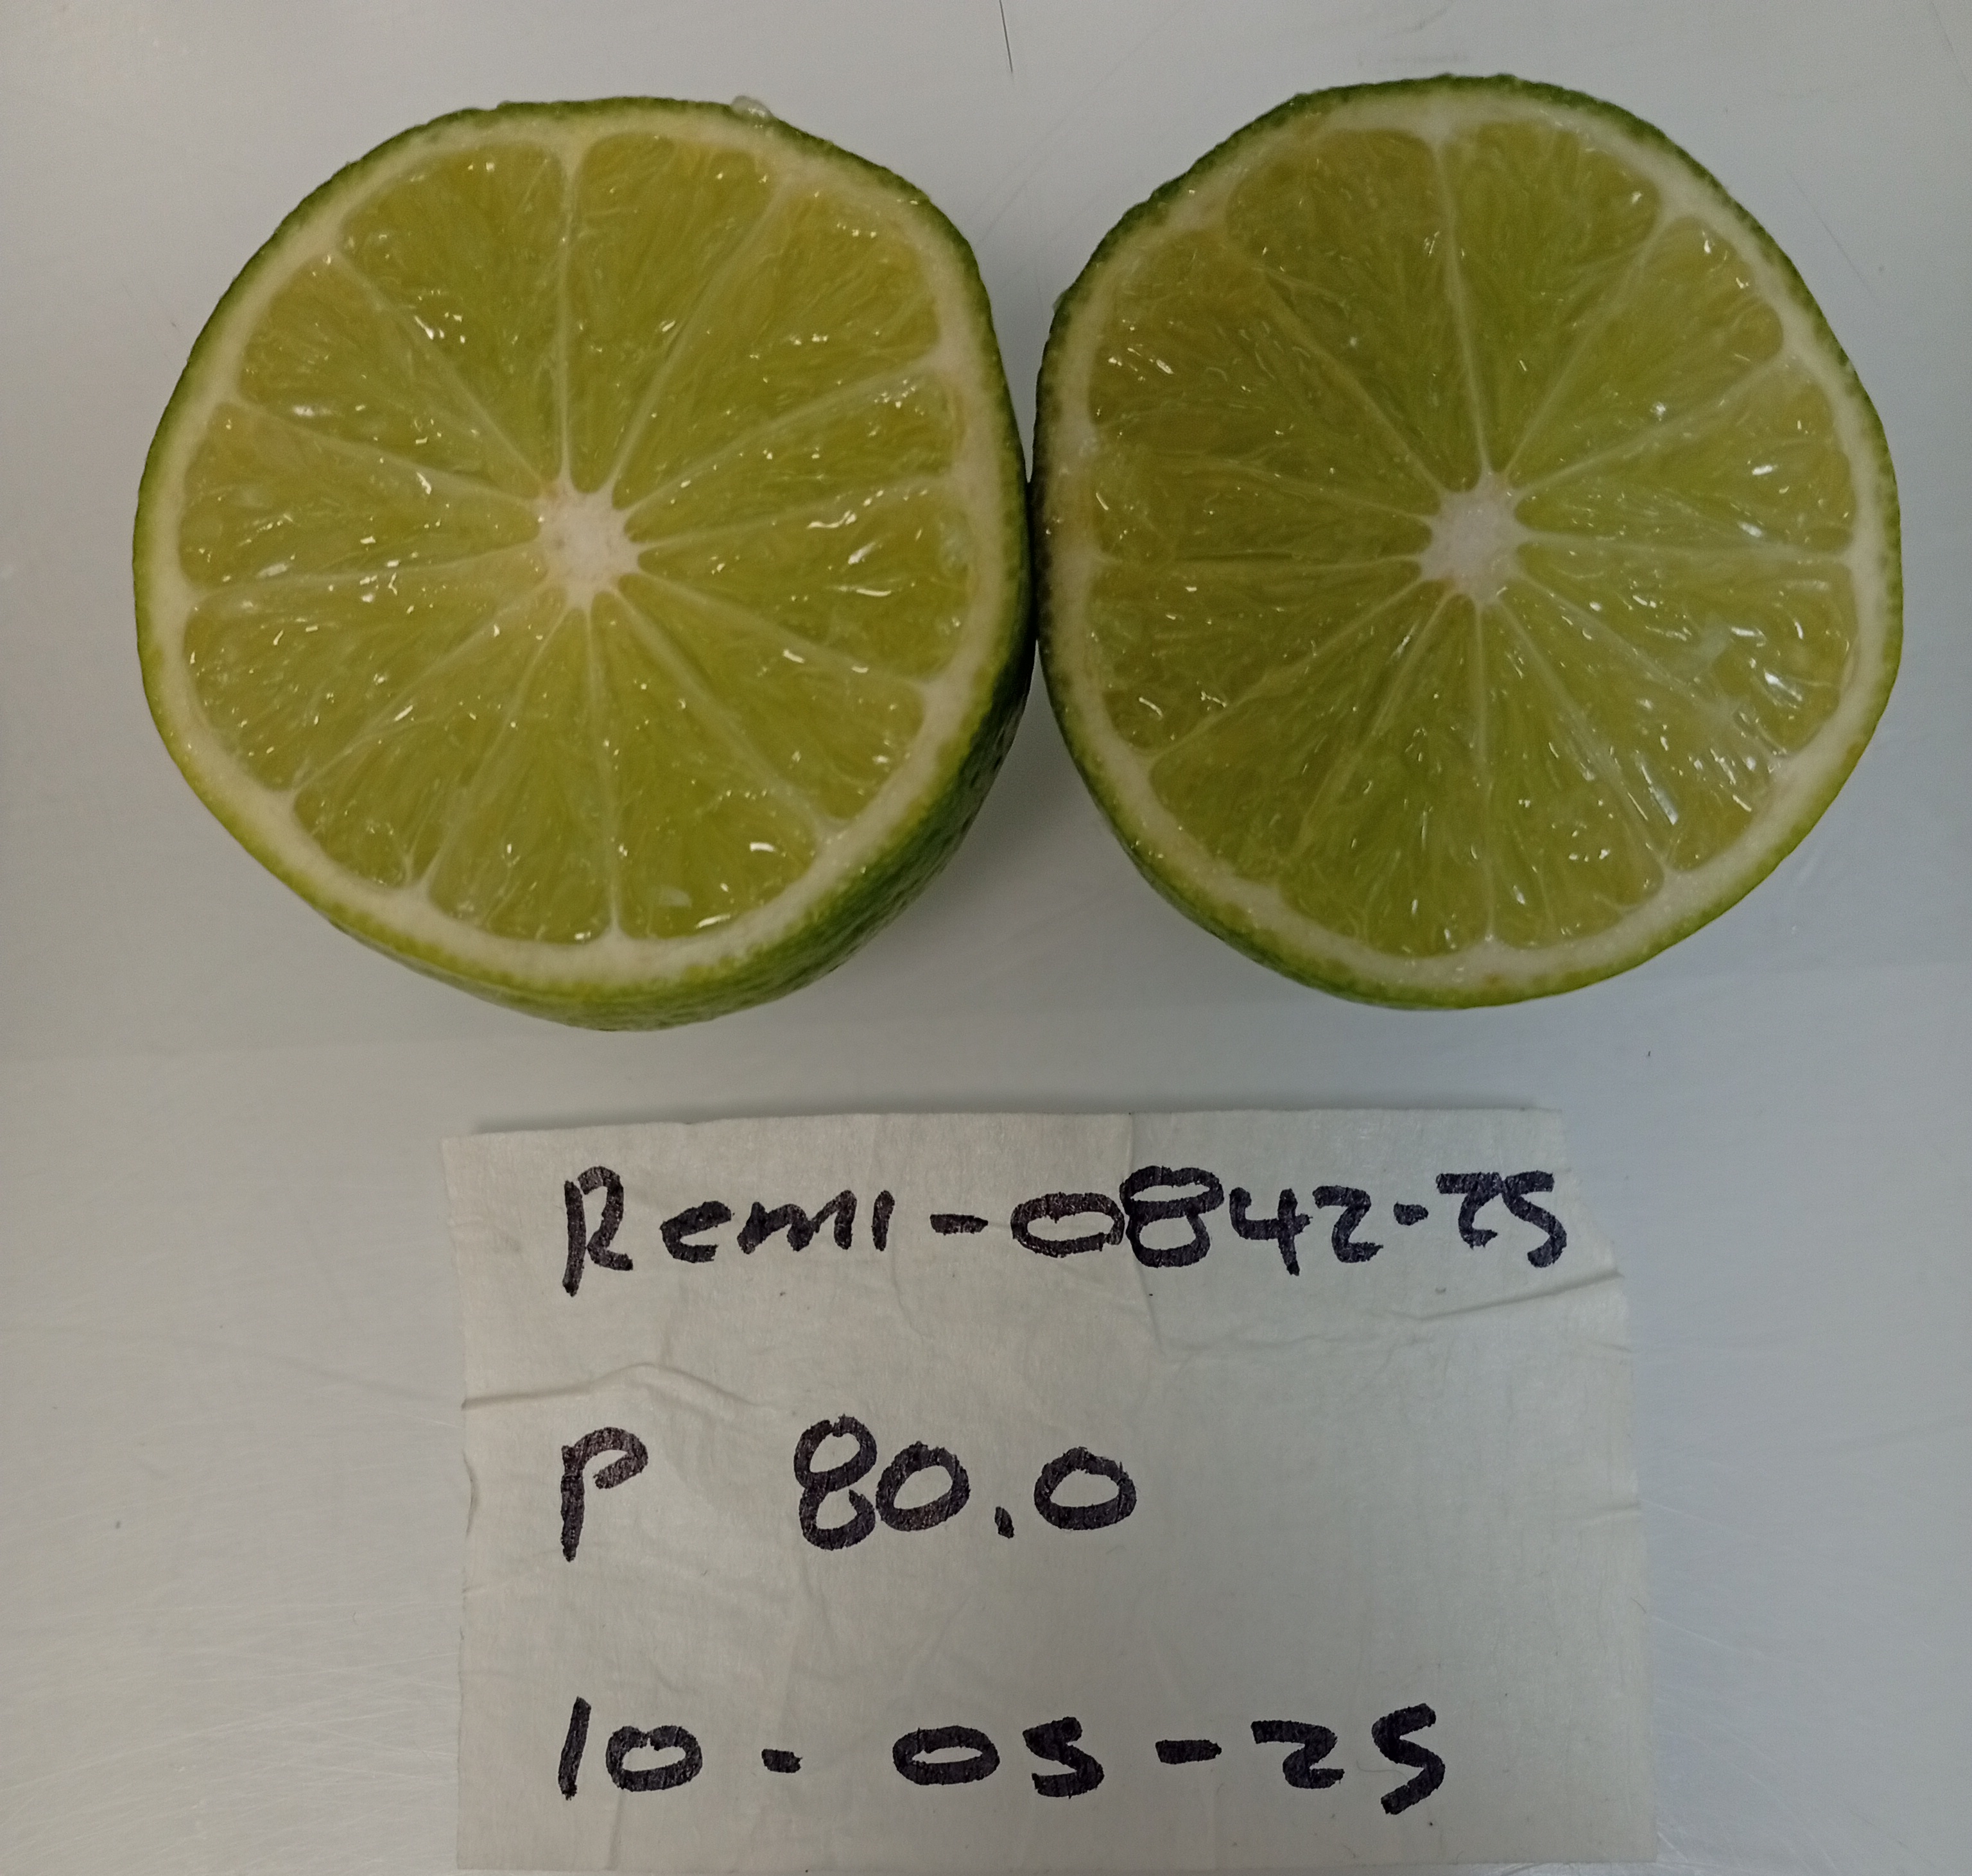 Remi-0842-25
P 80.0
10-05-25